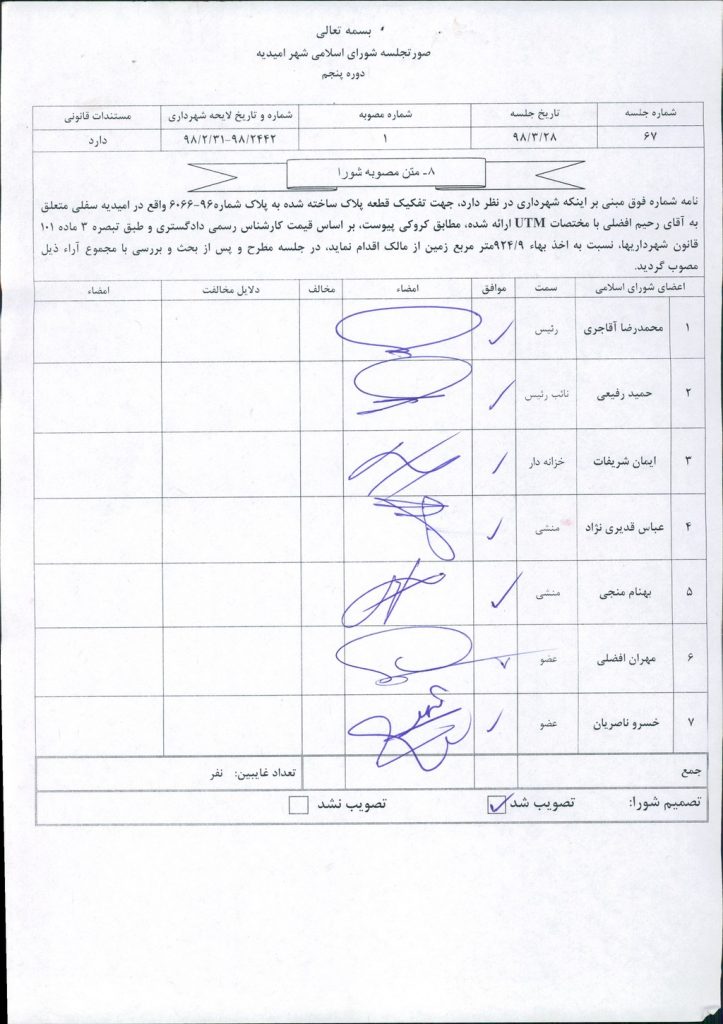 بسمه تعالی
صورتجلسه شورای اسلامی شهر امیدیه
دوره پنجم
شماره جلسه	تاریخ جلسه	شماره مصوبه	شماره و تاریخ لایحه شهرداری	مستندات قانونی
۶۷	۹۸/۳/۲۸	۱	۹۸/۲/۳۱-۹۸/۲۴۴۲	دارد
۸- متن مصوبه شورا
نامه شماره فوق مبنی بر اینکه شهرداری در نظر دارد، جهت تفکیک قطعه پلاک ساخته شده به پلاک شماره۹۶-۶۰۶۶ واقع در امیدیه سفلی متعلق
به آقای رحیم افضلی با مختصات UTM ارائه شده، مطابق کروکی پیوست، بر اساس قیمت کارشناس رسمی دادگستری و طبق تبصره ۳ ماده ۱۰۱
قانون شهرداریها، نسبت به اخذ بهاء ۹۲۴/۹متر مربع زمین از مالک اقدام نماید، در جلسه مطرح و پس از بحث و بررسی با مجموع آراء ذیل
مصوب گردید.
اعضای شورای اسلامی	سمت	موافق	امضاء	مخالف	دلایل مخالفت	امضاء
۱	محمدرضا آقاجری	رئیس
۲	حمید رفیعی	نائب رئیس
۳	ایمان شریفات	خزانه دار
۴	عباس قدیری نژاد	منشی
۵	بهنام منجی	منشی
۶	مهران افضلی	عضو
۷	خسرو ناصریان	عضو
جمع	تعداد غایبین: نفر
تصمیم شورا: تصویب شد	تصویب نشد